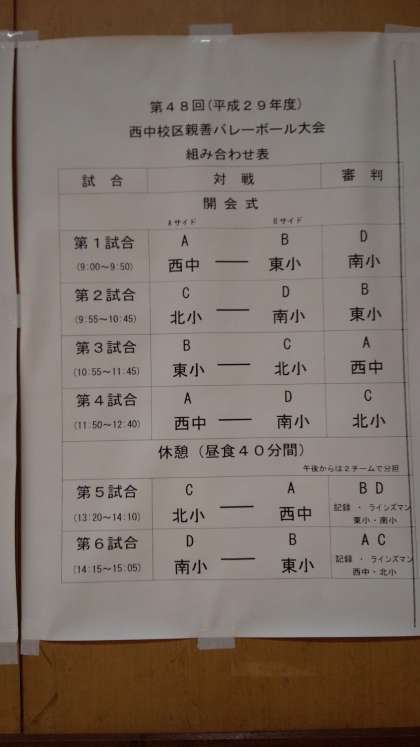 第48回(平成29年度)
西中校区親善バレーボール大会
組み合わせ表
試合 対戦 審判
開会式
Aサイド Bサイド
第1試合 A B D
(9:00～9:50) 西中 ― 東小 南小
第2試合 C D B
(9:55～10:45) 北小 ― 南小 東小
第3試合 B C A
(10:55～11:45) 東小 ― 北小 西中
第4試合 A D C
(11:50～12:40) 西中 ― 南小 北小
休憩(昼食40分間)
午後からは2チームで分担
第5試合 C A B D
(13:20～14:10) 北小 ― 西中 記録・ラインズマン
東小・南小
第6試合 D B A C
(14:15～15:05) 南小 ― 東小 記録・ラインズマン
西中・北小